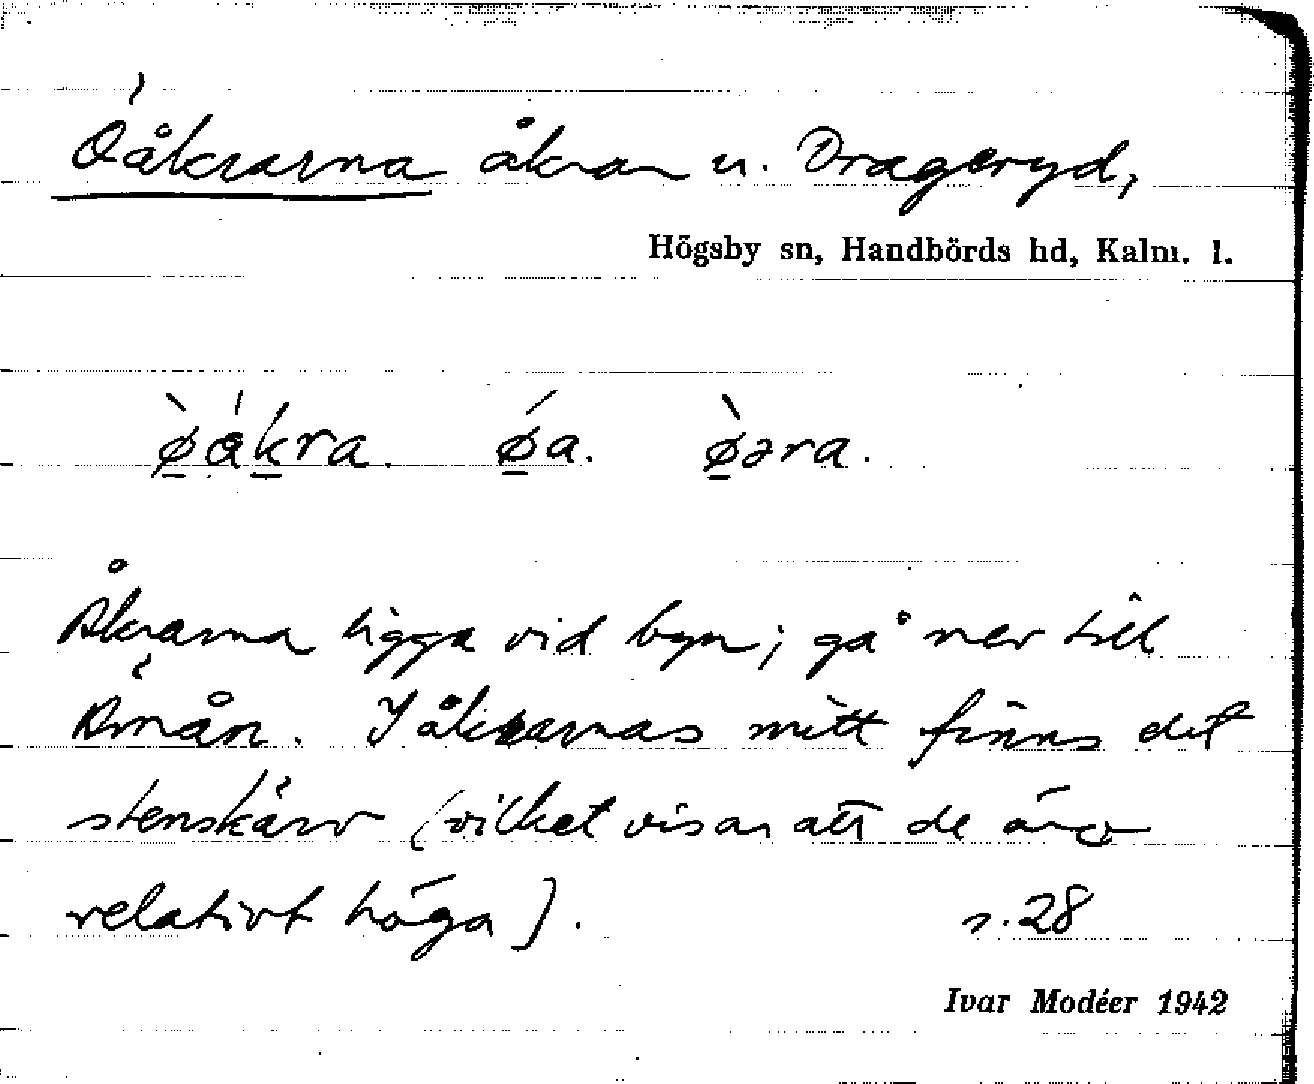 Öåkrarna åkrar u. Drageryd,
Högsby sn, Handbörds hd, Kalm. l.
ø̠̀åk̠ra. ǿ̠a. ø̠̀əra.
Åkrarna ligga vid byn; gå ner till
Emån. I åkrarnas mitt finns det
stenskärv (vilket visar att de äro
relativt höga).
s. 28
Ivar Modéer 1942